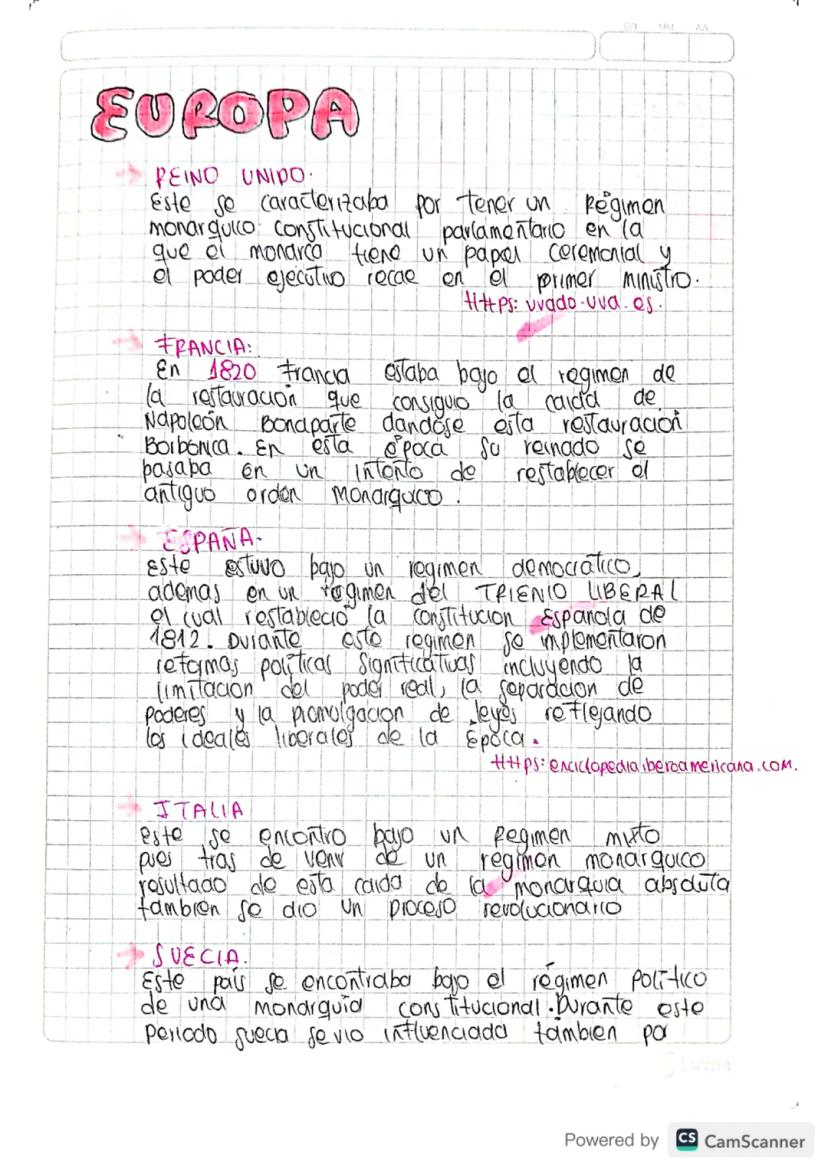 DD MM AA
EUROPA
→ REINO UNIDO.
Este se caracterizaba por tener un Régimen
monarquico constitucional parlamentario en la
que el monarca tiene un papel ceremonial y
el poder ejecutivo recae en el primer ministro.
HttPs: uvado.uva.es.
→ FRANCIA:
En 1820 Francia estaba bajo el regimen de
la restauración que consiguio la caida de
Napoleón Bonaparte dandose esta restauración
Borbonica. En esta época su reinado se
basaba en un intento de restablecer el
antiguo orden Monarquico.
→ ESPAÑA.
Este estuvo bajo un regimen democratico,
ademas en un regimen del TRIENIO LIBERAL
el cual restableció la constitucion Española de
1812. Durante este regimen se implementaron
reformas políticas significativas incluyendo la
limitacion del poder real, la separacion de
poderes y la promulgacion de leyes reflejando
los ideales liberales de la Época.
HttPs: enciclopediaiberoamericana.com.
→ ITALIA
este se encontro bajo un Regimen mixto
pues tras de venir de un regimen monarquico
resultado de esta caida de la monarquia absoluta
tambien se dio un proceso revolucionario
→ SUECIA.
Este país se encontraba bajo el régimen Político
de una monarquía constitucional. Durante este
periodo suecia se vio influenciada tambien por
norma
Powered by CS CamScanner